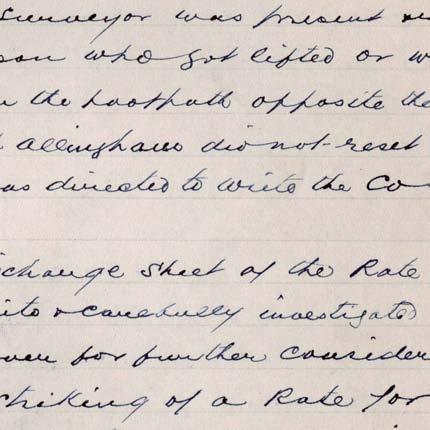 Surveyor was present
son who got lifted or w
the footpath opposite the
Allingham did not reset
as directed to write the Co
change Sheet of the Rate
into & carefully investigated
over for further consider
striking of a Rate for